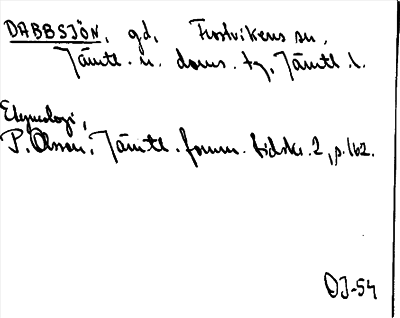 DABBSJÖN, gd, Frostvikens sn.
Jämtl. n. doms. tg, Jämtl. l.
Etymologi,
P. Olsson, Jämtl. fornm. tidskr. 2, p. 162.
OJ-54